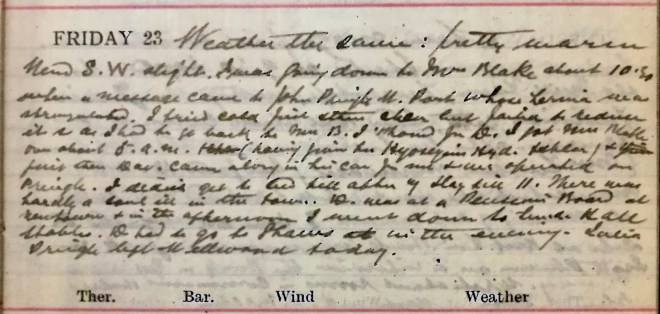 FRIDAY 23 Weather the same: pretty warm
Wind S.W. slight. I was going down to Mrs Blake about 10.30
when a message came to John Pringle W. Port whose hernia was
strangulated. I tried cold first then but failed to reduce
it & as I had to go back to Mrs B. I 'phoned for D. I got Mrs Blake
over about 5. a.m. (having given her Hyoscyin Hyd. ) &
just then Dav. came along in his car for me & we operated on
Pringle. I didn't get to bed till after 4 & lay till 11. There was
hardly a soul ill in the town. D. was at a Pensions Board at
& in the afternoon I went down to Hall
Stables. D had to go to Shaws in the evening.
Pringle left Wellwood today.
Ther. Bar. Wind Weather